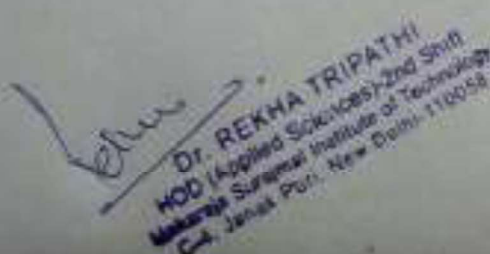 Dr. REKHA TRIPATHI
HOD (Applied Sciences)-2nd Shift
Maharaja Surajmal Institute of Technology
C-4, Janak Puri, New Delhi-110058